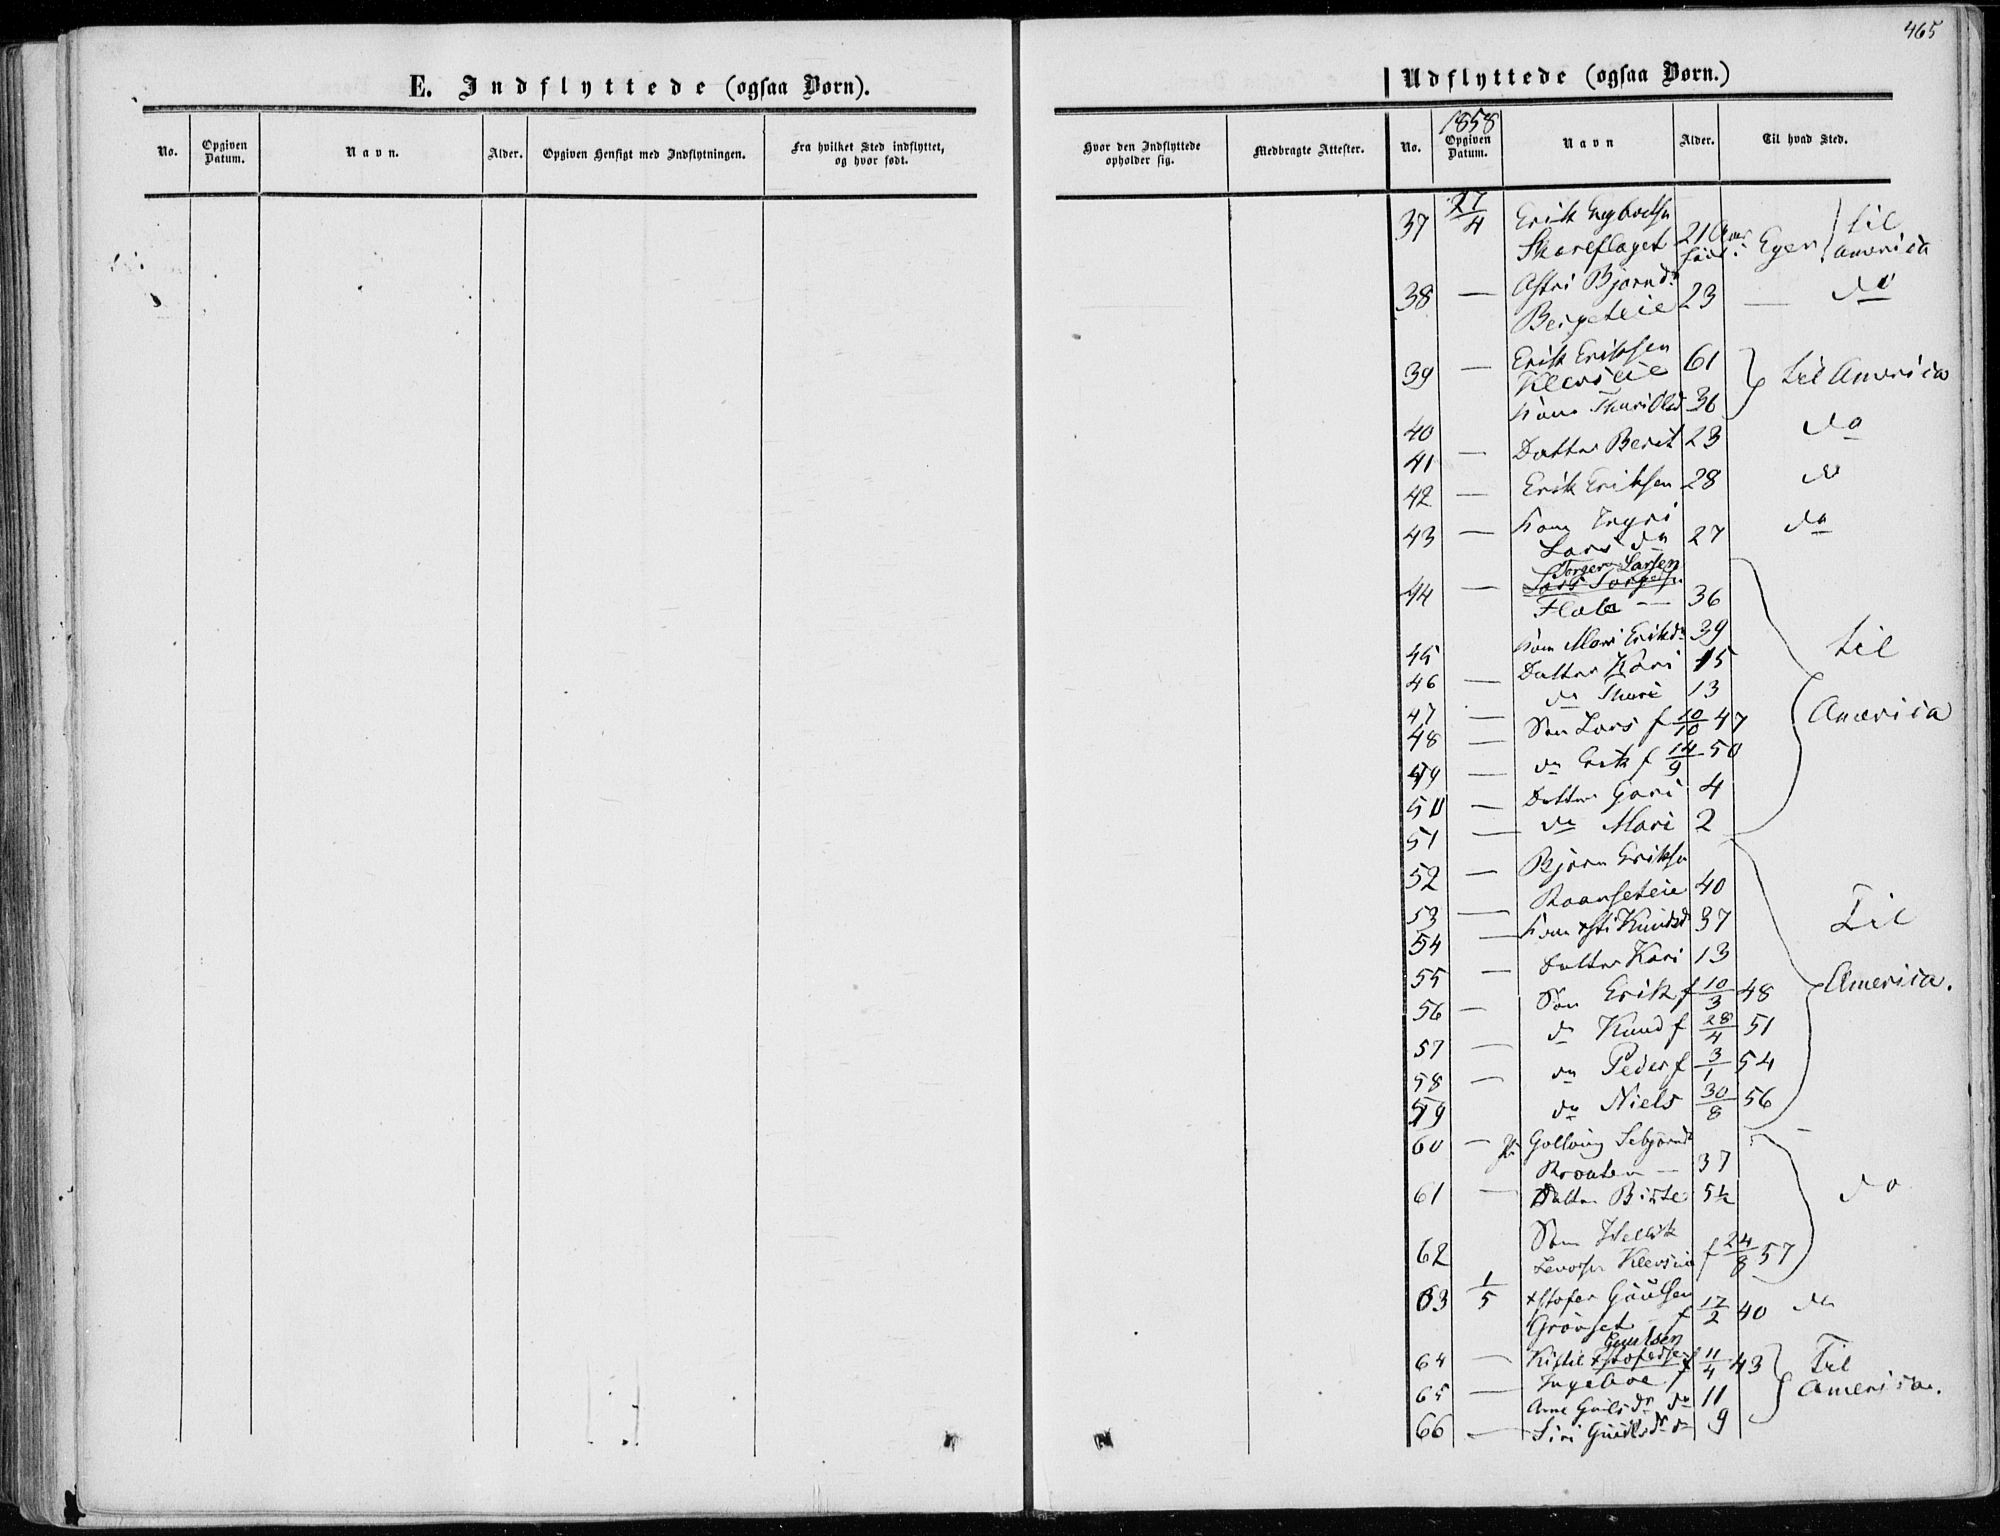 465
E. Indflyttede (ogsaa Børn).
No. Opgiven Datum. Navn. Alder. Opgiven Hensigt med Indflytningen. Fra hvilket Sted indflyttet, og hvor født.
Udflyttede (ogsaa Børn.)
Hvor den Indflyttede opholder sig. Medbragte Attester. No. 1858 Opgiven Datum. Navn Alder. Til hvad Sted.
37 27/4 Erik
21 Aar Eger til America
38 — Astri Bjørnd.
23 — do
39 — Erik Eriksen
61 til America
40 Kone Thuri Olsd 36
41 — Datter Berit 23 do
42 — Erik Eriksen 28 do
43 — Kone Ingri
Lars dn 27 do
44 — Torger Larsen
Lars Torgers
Flata — 36
45 Kone Mari Eriksd. 39 til
46 — Datter Kari 15
47 — do Thuri 13 America
48 — Søn Lars f 10/10 47
49 — do Erik f 14/9 50
50 — Datter Gari 4
51 — do Mari 2
52 — Bjørn Eriksen
40
53 — Kone Knudsd 37 Til
54 — Datter Kari 13
55 — Søn Erik f 10/3 48 America.
56 — do Knud f 28/4 51
57 — do Peder f 3/1 54
58 — do Niels 30/8 56
59
60 —
— 37
61 — Datter Birte 5½ do
62 Søn
f 24/8 57
63 1/5 Xstofer Guulsen
Grønset f 17/2 40 do
Guulsen
64 — Kittil Xstofersen f 11/4 43 Til
65 — America.
Anne Guulsdr do 11
66 — Siri Guulsdr do 9